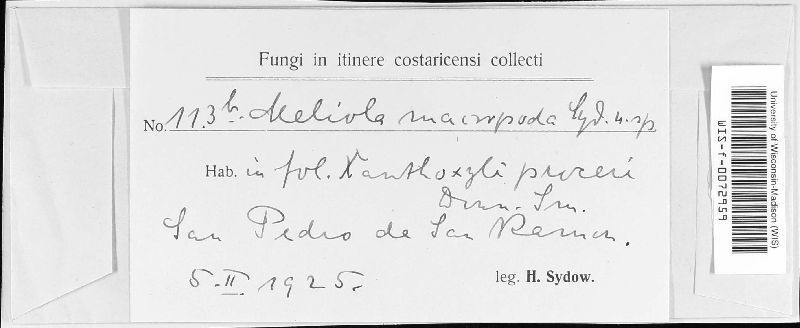 Fungi in itinere costaricensi collecti
No. 113b. Meliola macropoda Syd. n. sp.
Hab. in fol. Xanthoxyli proceri
Donn. Sm.
San Pedro de San Ramon.
5. II. 1925.
leg. H. Sydow.
University of Wisconsin-Madison (WIS)
WIS-f-0072959